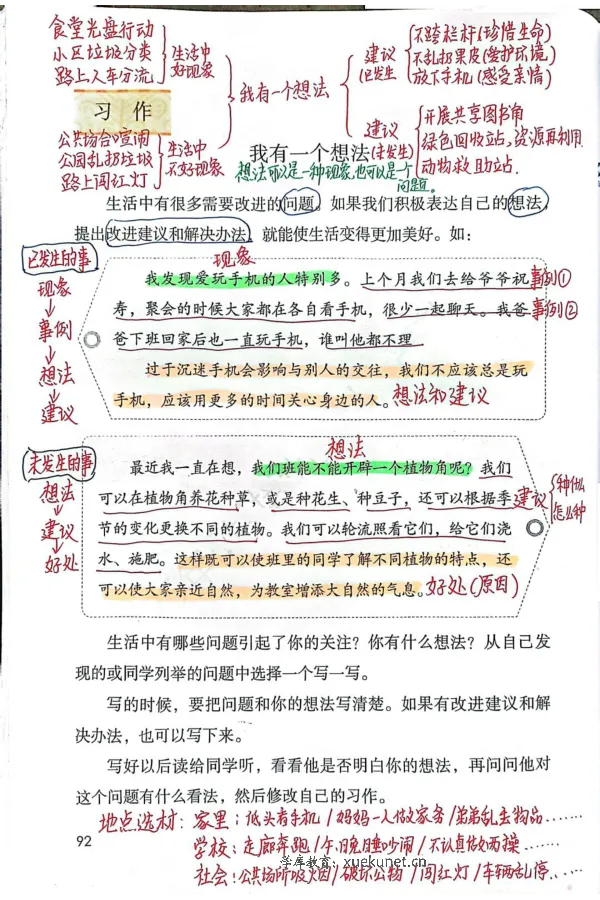 食堂光盘行动
小区垃圾分类
路上人车分流
生活中
好现象
我有一个想法
建议
(已发生)
不跨栏杆(珍惜生命)
不乱扔果皮(爱护环境)
放下手机(感受亲情)
习 作
公共场合喧闹
公园乱扔垃圾
路上闯红灯
生活中
不好现象
建议
(未发生)
开展共享图书角
绿色回收站,资源再利用
动物救助站
我有一个想法
想法可以是一种现象,也可以是个
问题。
生活中有很多需要改进的问题。如果我们积极表达自己的想法,
提出改进建议和解决办法,就能使生活变得更加美好。如:
已发生的事
现象
事例
想法
建议
现象
我发现爱玩手机的人特别多。上个月我们去给爷爷祝
事例①
寿,聚会的时候大家都在各自看手机,很少一起聊天。我爸
事例②
爸下班回家后也一直玩手机,谁叫他都不理。
过于沉迷手机会影响与别人的交往,我们不应该总是玩
手机,应该用更多的时间关心身边的人。
想法和建议
未发生的事
想法
建议
好处
想法
最近我一直在想,我们班能不能开辟一个植物角呢?我们
可以在植物角养花种草,或是种花生、种豆子,还可以根据季
建议
种什么
怎么种
节的变化更换不同的植物。我们可以轮流照看它们,给它们浇
水、施肥。这样既可以使班里的同学了解不同植物的特点,还
可以使大家亲近自然,为教室增添大自然的气息。
好处(原因)
生活中有哪些问题引起了你的关注?你有什么想法?从自己发
现的或同学列举的问题中选择一个写一写。
写的时候,要把问题和你的想法写清楚。如果有改进建议和解
决办法,也可以写下来。
写好以后读给同学听,看看他是否明白你的想法,再问问他对
这个问题有什么看法,然后修改自己的习作。
地点选材:家里:低头看手机/妈妈一人做家务/弟弟乱丢物品……
92
学校:走廊奔跑/午明晚睡吵闹/不认真做如两操……
学库教育:xuekunet.cn
社会:公共场所吸烟/破坏公物/闯红灯/车辆乱停……